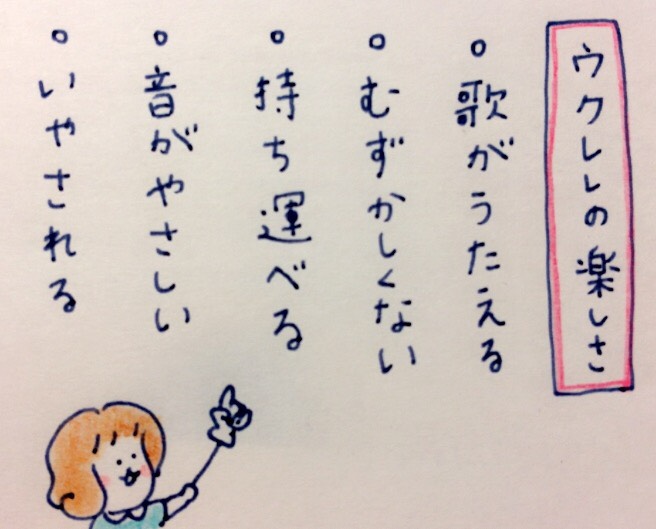 ウクレレの楽しさ
。歌がうたえる
。むずかしくない
。持ち運べる
。音がやさしい
。いやされる